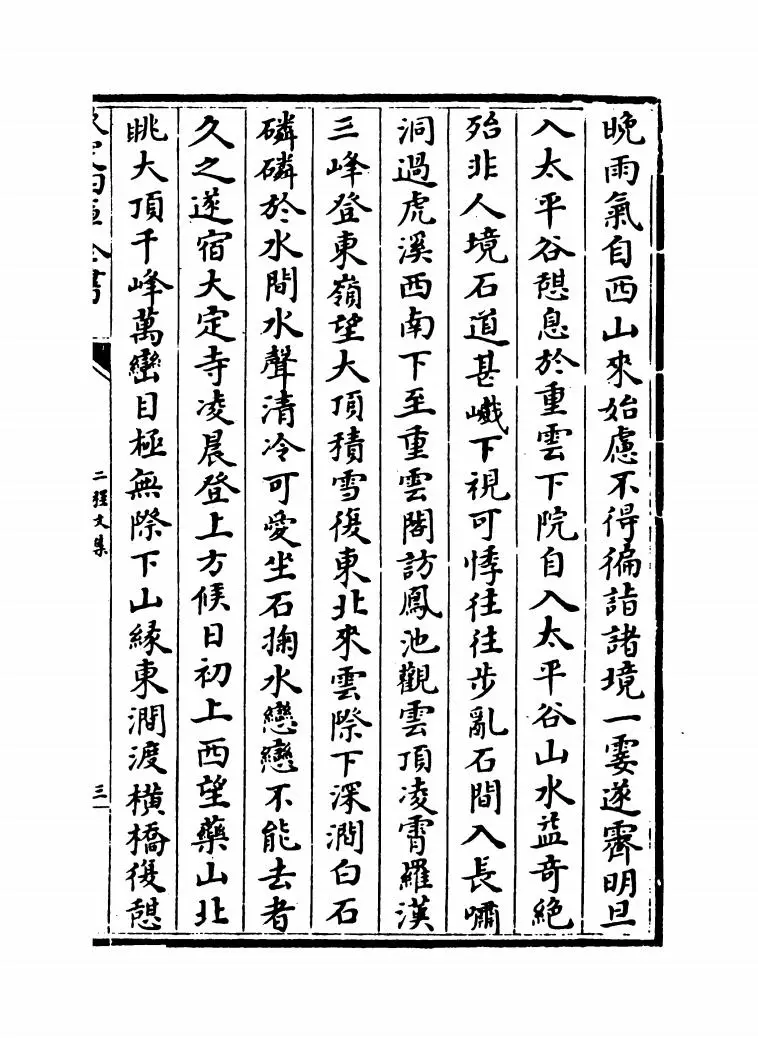 晚雨氣自西山來始慮不得徧詣諸境一霎遂霽明旦
入太平谷憩息於重雲下院自入太平谷山水益奇絶
殆非人境石道甚巇下視可悸往往步亂石間入長嘯
洞過虎溪西南下至重雲閣訪鳳池觀雲頂凌霄羅漢
三峰登東嶺望大頂積雪復東北來雲際下深澗白石
磷磷於水間水聲清冷可愛坐石掬水戀戀不能去者
久之遂宿大定寺凌晨登上方候日初上西望藥山北
眺大頂千峰萬巒目極無際下山緣東澗渡橫橋復憩
欽定四庫全書
二程文集
三